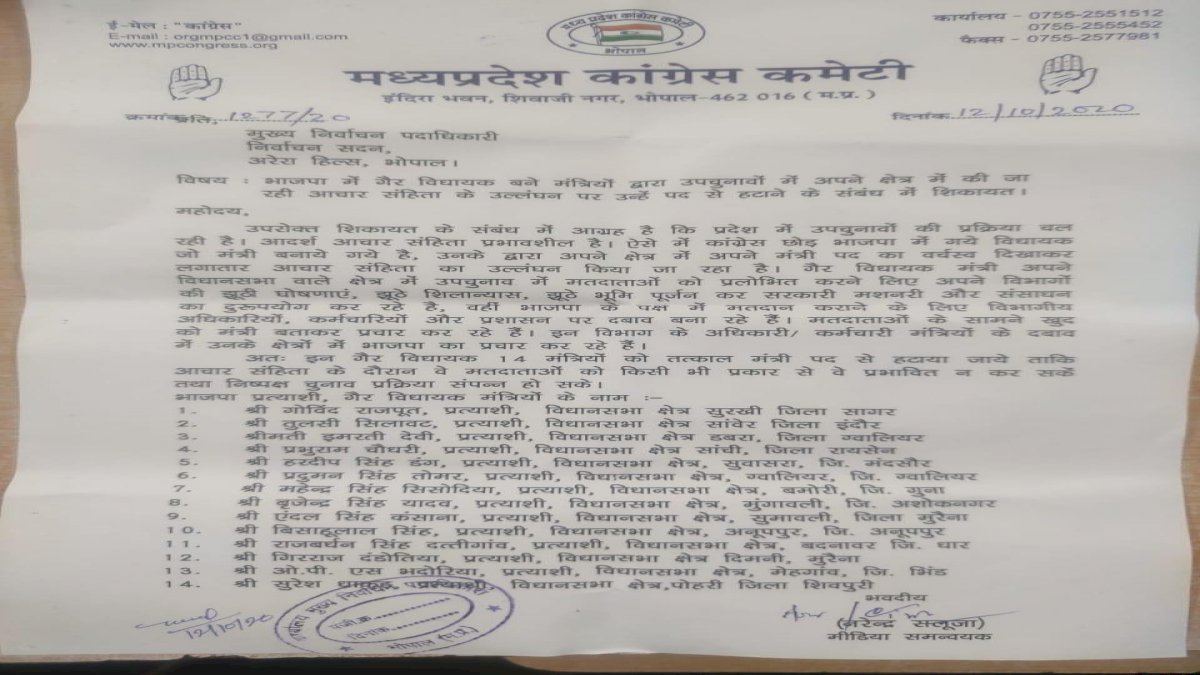 ई-मेल : "कांग्रेस"
E-mail : orgmpcc1@gmail.com
www.mpcongress.org
मध्य प्रदेश कांग्रेस कमेटी
भोपाल
कार्यालय - 0755-2551512
0755-2555452
फैक्स - 0755-2577981
मध्यप्रदेश कांग्रेस कमेटी
इंदिरा भवन, शिवाजी नगर, भोपाल-462 016 ( म.प्र. )
क्रमांक 1277/20
दिनांक 12/10/2020
प्रति,
मुख्य निर्वाचन पदाधिकारी
निर्वाचन सदन,
अरेरा हिल्स, भोपाल।
विषय : भाजपा में गैर विधायक बने मंत्रियों द्वारा उपचुनावों में अपने क्षेत्र में की जा
रही आचार संहिता के उल्लंघन पर उन्हें पद से हटाने के संबंध में शिकायत।
महोदय,
उपरोक्त शिकायत के संबंध में आग्रह है कि प्रदेश में उपचुनावों की प्रक्रिया चल
रही है। आदर्श आचार संहिता प्रभावशील है। ऐसे में कांग्रेस छोड़ भाजपा में गये विधायक
जो मंत्री बनाये गये है, उनके द्वारा अपने क्षेत्र में अपने मंत्री पद का वर्चस्व दिखाकर
लगातार आचार संहिता का उल्लंघन किया जा रहा है। गैर विधायक मंत्री अपने
विधानसभा वाले क्षेत्र में उपचुनाव में मतदाताओं को प्रलोभित करने लिए अपने विभागों
की झूठी घोषणाएं, झूठे शिलान्यास, झूठे भूमि पूर्जन कर सरकारी मशनरी और संसाधन
का दुरूपयोग कर रहे है, वहीं भाजपा के पक्ष में मतदान कराने के लिए विभागीय
अधिकारियों, कर्मचारियों और प्रशासन पर दबाव बना रहे हैं। मतदाताओं के सामने खुद
को मंत्री बताकर प्रचार कर रहे हैं। इन विभाग के अधिकारी/ कर्मचारी मंत्रियों के दबाव
में उनके क्षेत्रों में भाजपा का प्रचार कर रहे हैं।
अतः इन गैर विधायक 14 मंत्रियों को तत्काल मंत्री पद से हटाया जाये ताकि
आचार संहिता के दौरान वे मतदाताओं को किसी भी प्रकार से वे प्रभावित न कर सकें
तथा निष्पक्ष चुनाव प्रक्रिया संपन्न हो सके।
भाजपा प्रत्याशी, गैर विधायक मंत्रियों के नाम :-
1. श्री गोविंद राजपूत, प्रत्याशी, विधानसभा क्षेत्र सुरखी जिला सागर
2. श्री तुलसी सिलावट, प्रत्याशी, विधानसभा क्षेत्र सांवेर जिला इंदौर
3. श्रीमती इमरती देवी, प्रत्याशी, विधानसभा क्षेत्र डबरा, जिला ग्वालियर
4. श्री प्रभुराम चौधरी, प्रत्याशी, विधानसभा क्षेत्र सांची, जिला रायसेन
5. श्री हरदीप सिंह डंग, प्रत्याशी, विधानसभा क्षेत्र, सुवासरा, जि. मंदसौर
6. श्री प्रदुमन सिंह तोमर, प्रत्याशी, विधानसभा क्षेत्र, ग्वालियर, जि. ग्वालियर
7. श्री महेन्द्र सिंह सिसोदिया, प्रत्याशी, विधानसभा क्षेत्र, बमोरी, जि. गुना
8. श्री बृजेन्द्र सिंह यादव, प्रत्याशी, विधानसभा क्षेत्र, मुंगावली, जि. अशोकनगर
9. श्री एंदल सिंह कंसाना, प्रत्याशी, विधानसभा क्षेत्र, सुमावली, जिला मुरैना
10. श्री बिसाहूलाल सिंह, प्रत्याशी, विधानसभा क्षेत्र, अनूपपुर, जि. अनूपपुर
11. श्री राजबर्धन सिंह दत्तीगांव, प्रत्याशी, विधानसभा क्षेत्र, बदनावर जि. धार
12. श्री गिरराज दंडोतिया, प्रत्याशी, विधानसभा क्षेत्र दिमनी, मुरैना
13. श्री ओ.पी. एस भदोरिया, प्रत्याशी, विधानसभा क्षेत्र, मेहगांव, जि. भिंड
14. श्री सुरेश धाकड़ प्रत्याशी, विधानसभा क्षेत्र,पोहरी जिला शिवपुरी
भवदीय
(नरेन्द्र सलूजा)
मीडिया समन्वयक
12/10/20
कार्यालय मुख्य निर्वाचन पदाधिकारी
पंजी.क्र.
दिनांक
भोपाल (म.प्र.)